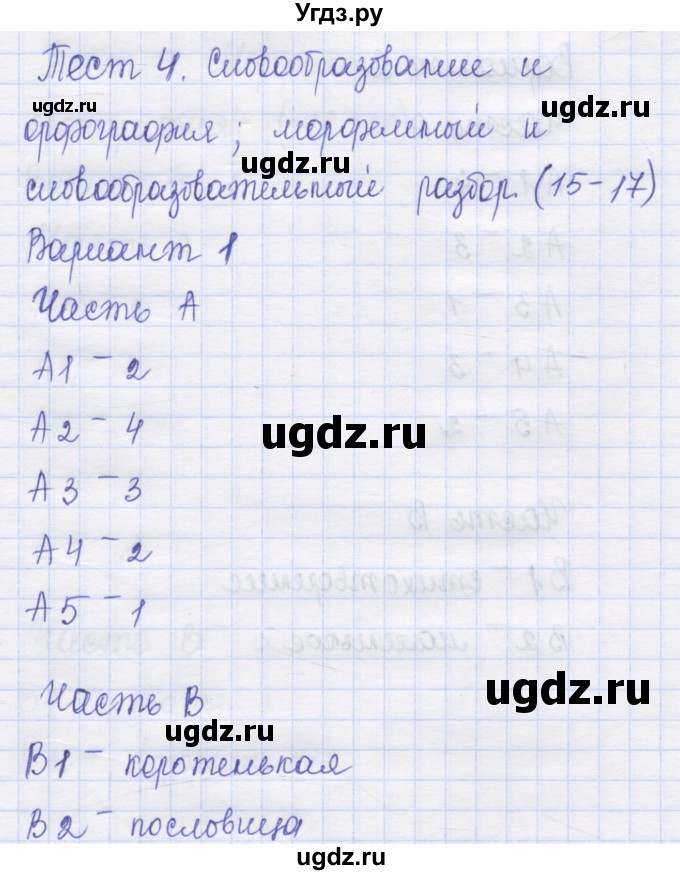 Угдз.ру
Тест 4. Словообразование и
ugdz.ru
ugdz.ru
орфография; морфемный и
ugdz.ru
словообразовательный разбор. (15-17)
Вариант 1
Часть А
А1 - 2
А2 - 4
ugdz.ru
А3 - 3
А4 - 2
А5 - 1
Часть В
ugdz.ru
ugdz.ru
В1 - коротенькая
В2 - пословица
ugdz.ru